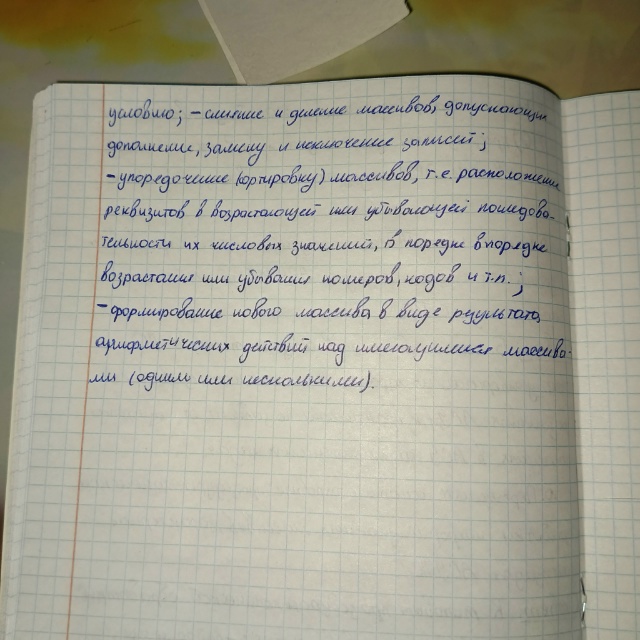 условию; - слияние и деление массивов, допускающие
дополнение, замену и исключение записей;
- упоредочение (сортировку) массивов, т.е. расположение
реквизитов в возрастающей или убывающей последова-
тельности их числовых значений, в поредке в поредке
возрастания или убывания номеров, кодов и т.п.;
- формирование нового массива в виде результата
арифметических действий над имеющимися массива-
ми (одним или несколькими).